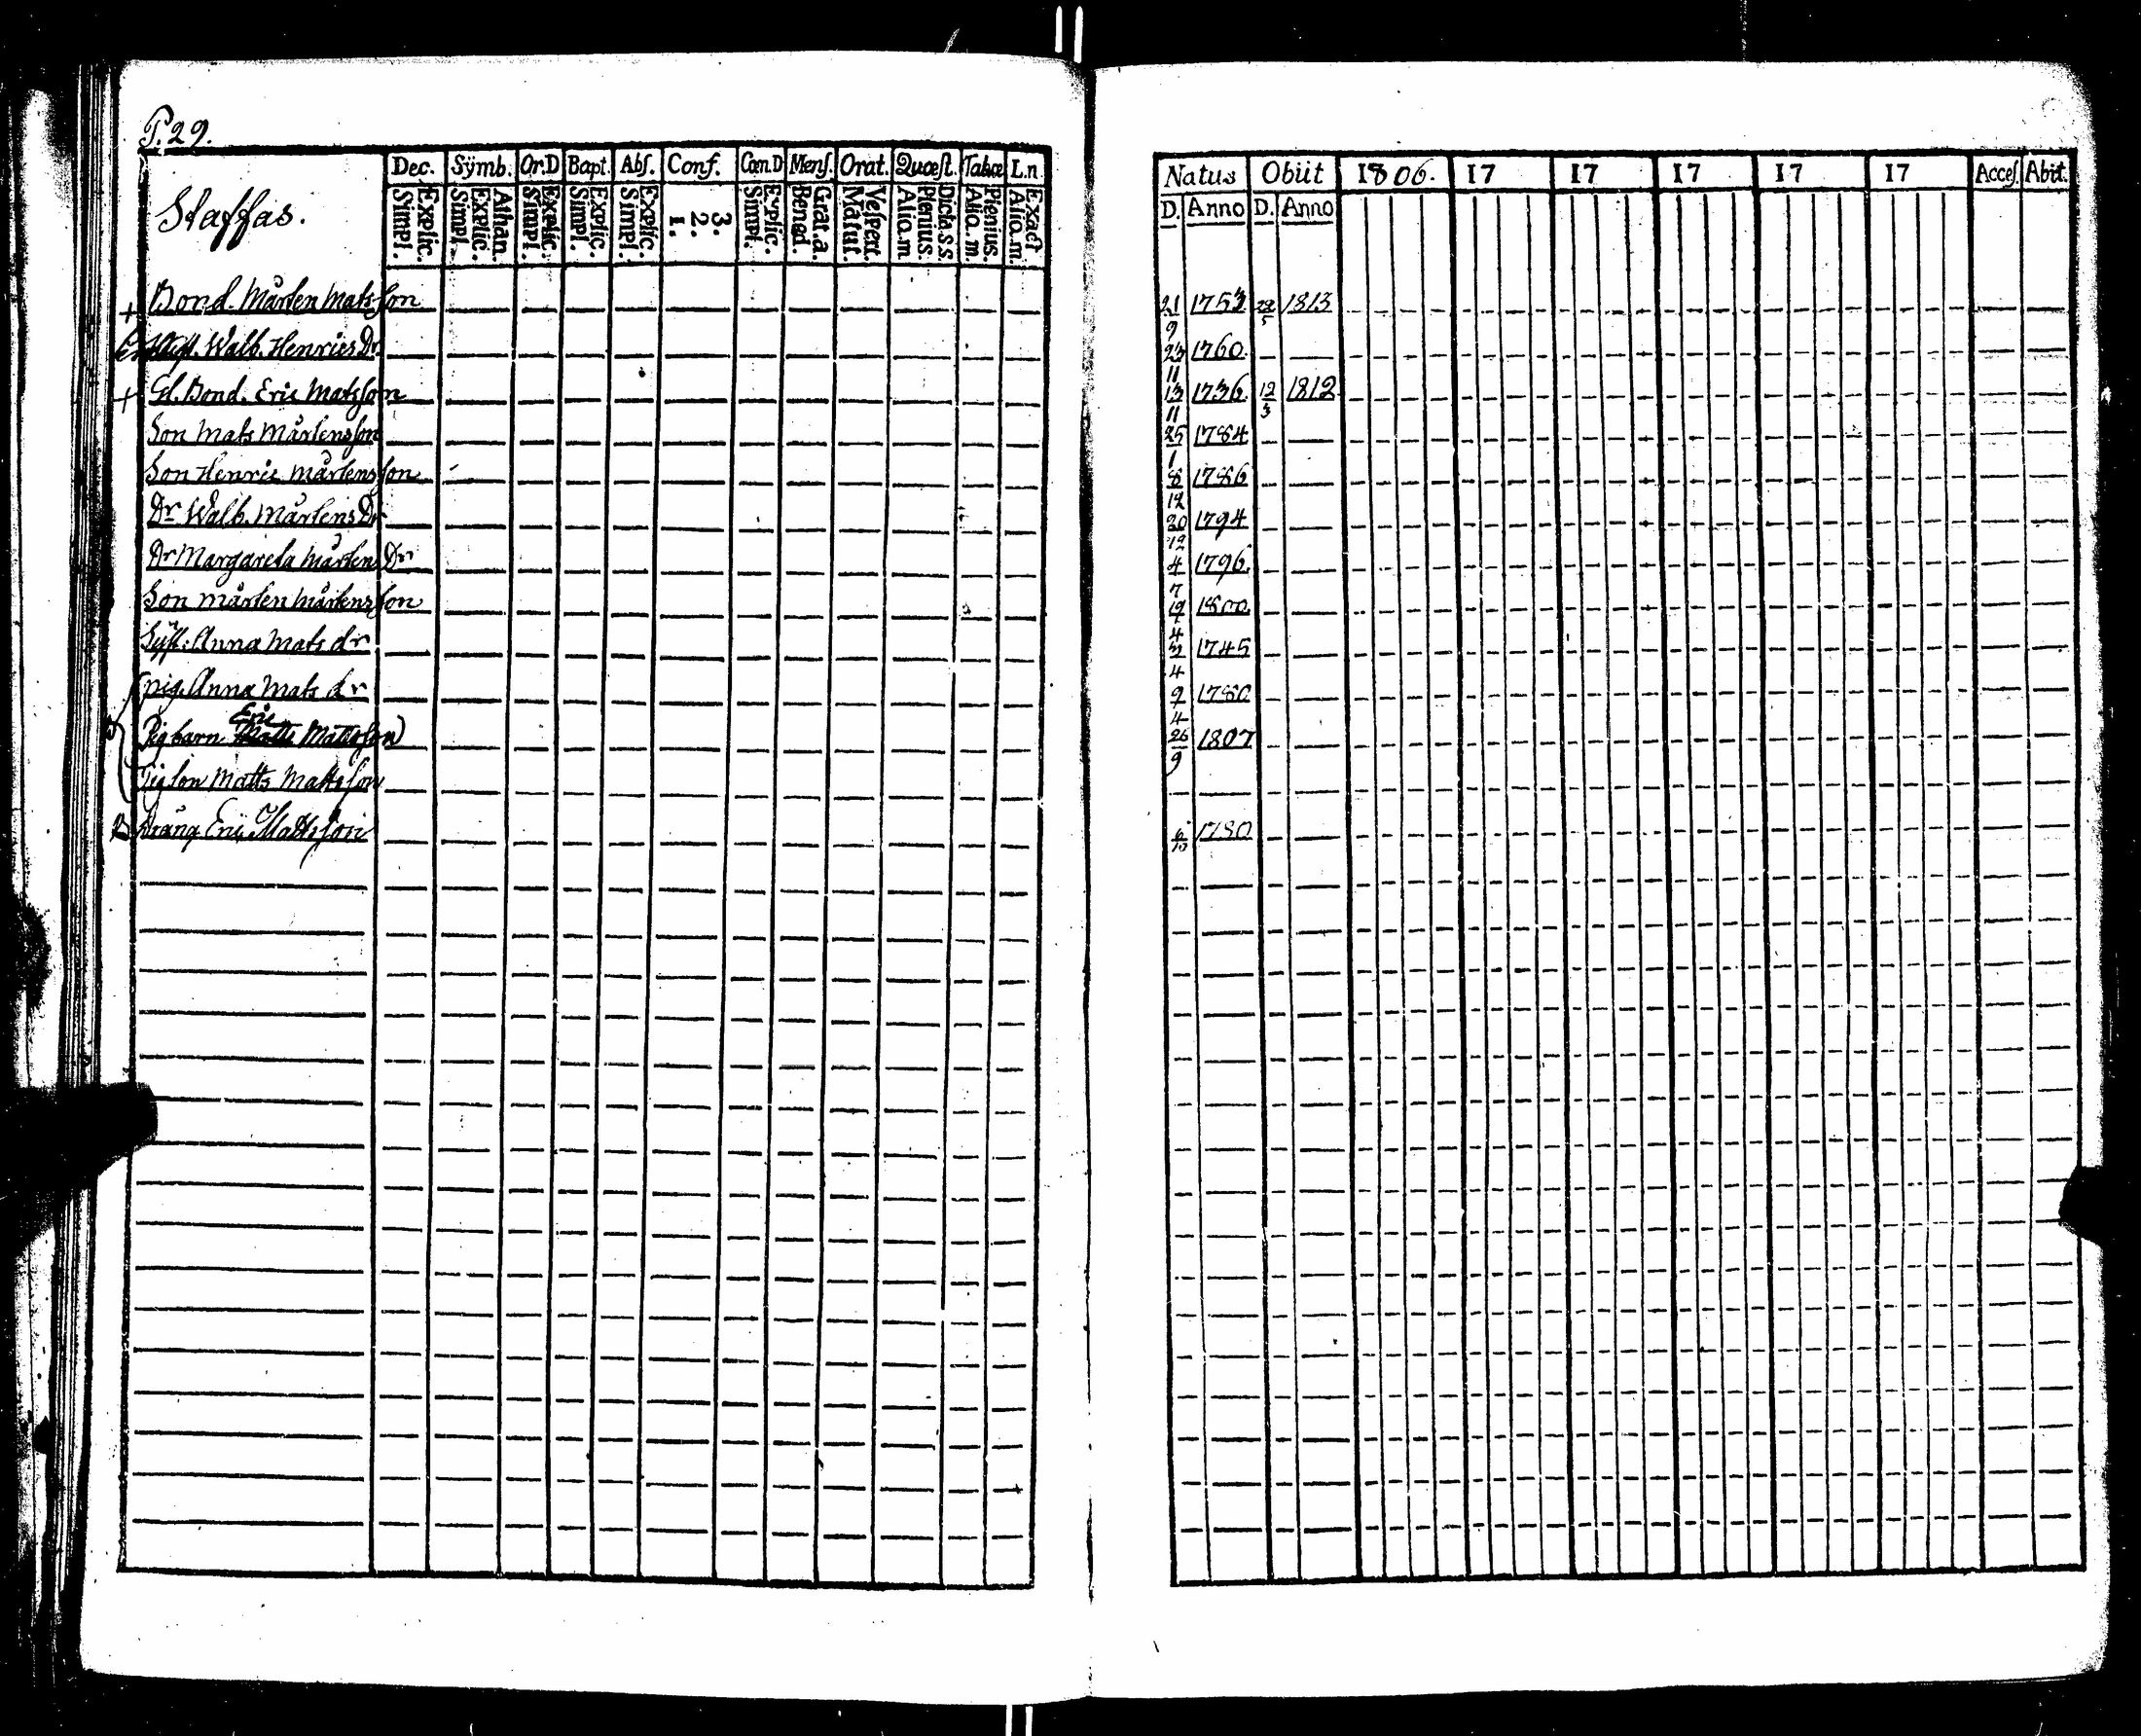 P. 29.
Staffas.
Dec. Sÿmb. Or.D Bapt. Abſ. Conf. Cœn.D Menſ. Orat. Quœſt. Tabœ L.n
Simpl. Explic. Simpl. Explic. Athan. Simpl. Explic. Simpl. Explic. Simpl. Explic. 1. 2. 3. Simpl. Explic. Bened. Grat.a. Matut. Veſpert. Aliq.m Plenius. Dicta s.s. Aliq.m. Plenius. Aliq.m. Exact
+ Bond. Mårten Matsſon
Walb. Henrics Dr
+ Gl. Bond. Eric Matsſon
Son Mats Mårtensſon
Son Henric Mårtensſon
Dr Walb. Mårtens Dr
Dr Margareta Mårtens Dr
Son Mårten Mårtensſon
Syſt. Anna Mats dr
pig. Anna Mats dr
Eric
Pigbarn Matts Mattsſon
Pigson Matts Mattsſon
Dräng Eric Mattsſon
Natus Obiit 1806. 17 17 17 17 17 Acceſ. Abit.
D. Anno D. Anno
21/9 1753 28/5 1813
1760.
13/11 1736. 12/3 1812
25/1 1784
8/12 1786
20/12 1794
4/7 1796
1800
1745
1780
26/9 1807
6/10 1780